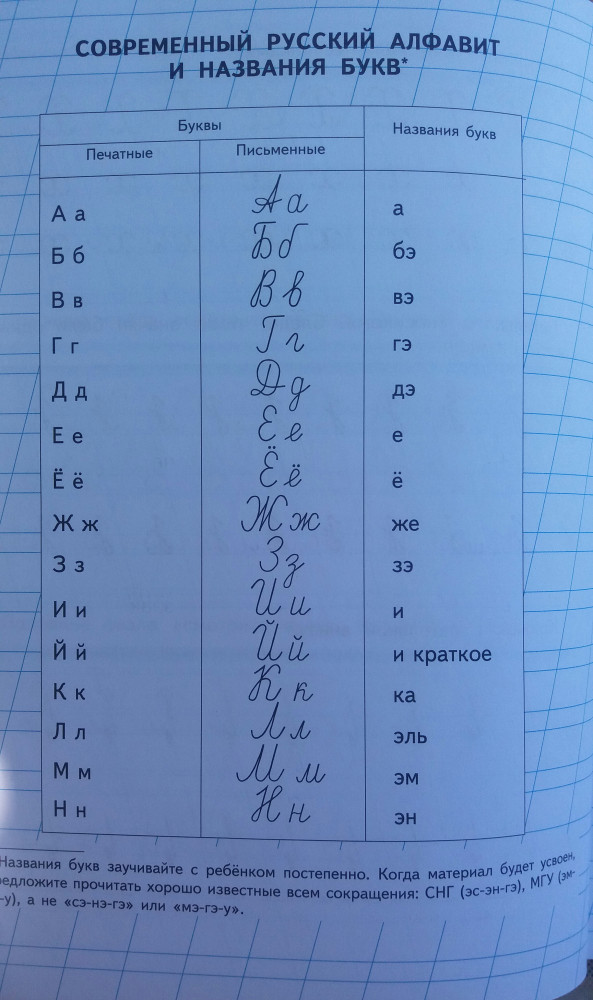 СОВРЕМЕННЫЙ РУССКИЙ АЛФАВИТ
И НАЗВАНИЯ БУКВ*
Буквы Названия букв
Печатные Письменные
А а А а а
Б б Б б бэ
В в В в вэ
Г г Г г гэ
Д д Д д дэ
Е е Е е е
Ё ё Ё ё ё
Ж ж Ж ж же
З з З з зэ
И и И и и
Й й Й й и краткое
К к К к ка
Л л Л л эль
М м М м эм
Н н Н н эн
Названия букв заучивайте с ребёнком постепенно. Когда материал будет усвоен,
едложите прочитать хорошо известные всем сокращения: СНГ (эс-эн-гэ), МГУ (эм-
-у), а не «сэ-нэ-гэ» или «мэ-гэ-у».